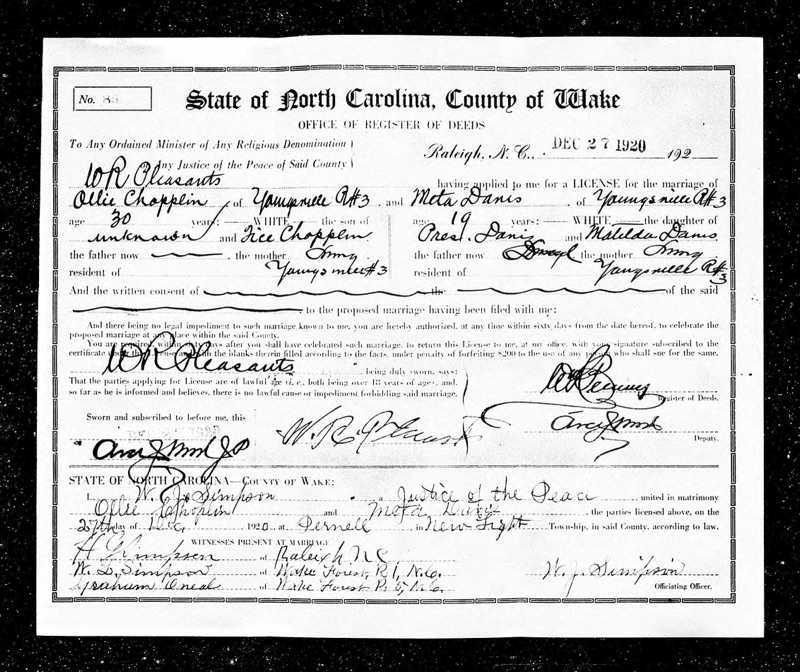 No. 86
State of North Carolina, County of Wake
OFFICE OF REGISTER OF DEEDS
To Any Ordained Minister of Any Religious Denomination
any Justice of the Peace of Said County
Raleigh, N. C., DEC 27 1920 192
W R Pleasants having applied to me for a LICENSE for the marriage of
Ollie Chopplin of Youngsville R#3 and Meta Davis of Youngsville R#3
age 30 years; WHITE the son of age 19 years; WHITE the daughter of
unknown and Tice Chopplin Pres. Davis and Matilda Davis
the father now the mother living the father now Dead the mother living
resident of Youngsville #3 resident of Youngsville R#3
And the written consent of the of the said
to the proposed marriage having been filed with me:
And there being no legal impediment to such marriage known to me, you are hereby authorized, at any time within sixty days from the date hereof, to celebrate the
proposed marriage at any place within the said county.
You are required within days after you shall have celebrated such marriage, to return this License to me, at my office, with your signature subscribed to the
certificate under the License, with the blanks therein filled according to the facts, under penalty of forfeiting $200 to the use of any person who shall sue for the same.
W R Pleasants being duly sworn, says:
That the parties applying for License are of lawful age (i. e., both being over 18 years of age), and,
so far as he is informed and believes, there is no lawful cause or impediment forbidding said marriage.
Register of Deeds.
Sworn and subscribed to before me, this
W. R. Pleasants
Deputy.
STATE OF NORTH CAROLINA—COUNTY OF WAKE:
I, W. J. Simpson a Justice of the Peace united in matrimony
Ollie Choplin and Meta Davis the parties licensed above, on the
27th day of Dec 1920 at Pernell in New Light Township, in said County, according to law.
WITNESSES PRESENT AT MARRIAGE
H Simpson of Raleigh N C
W. D. Simpson of Wake Forest, R 1, N.C.
Graham Oneal of Wake Forest R N.C.
W. J. Simpson
Officiating Officer.